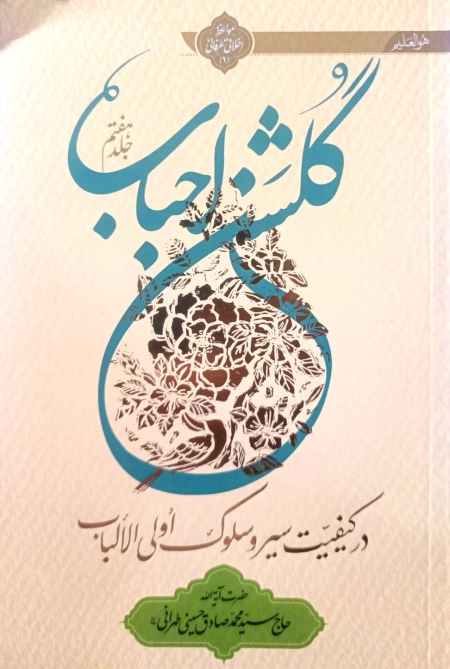 هوالعلیم
مواعظ
اخلاقی عرفانی
(۱)
گلشن احباب
جلد هفتم
در کیفیّت سیر و سلوک اُولی الألباب
حضرت آیة الله
حاج سیّد محمّد صادق حسینی طهرانی